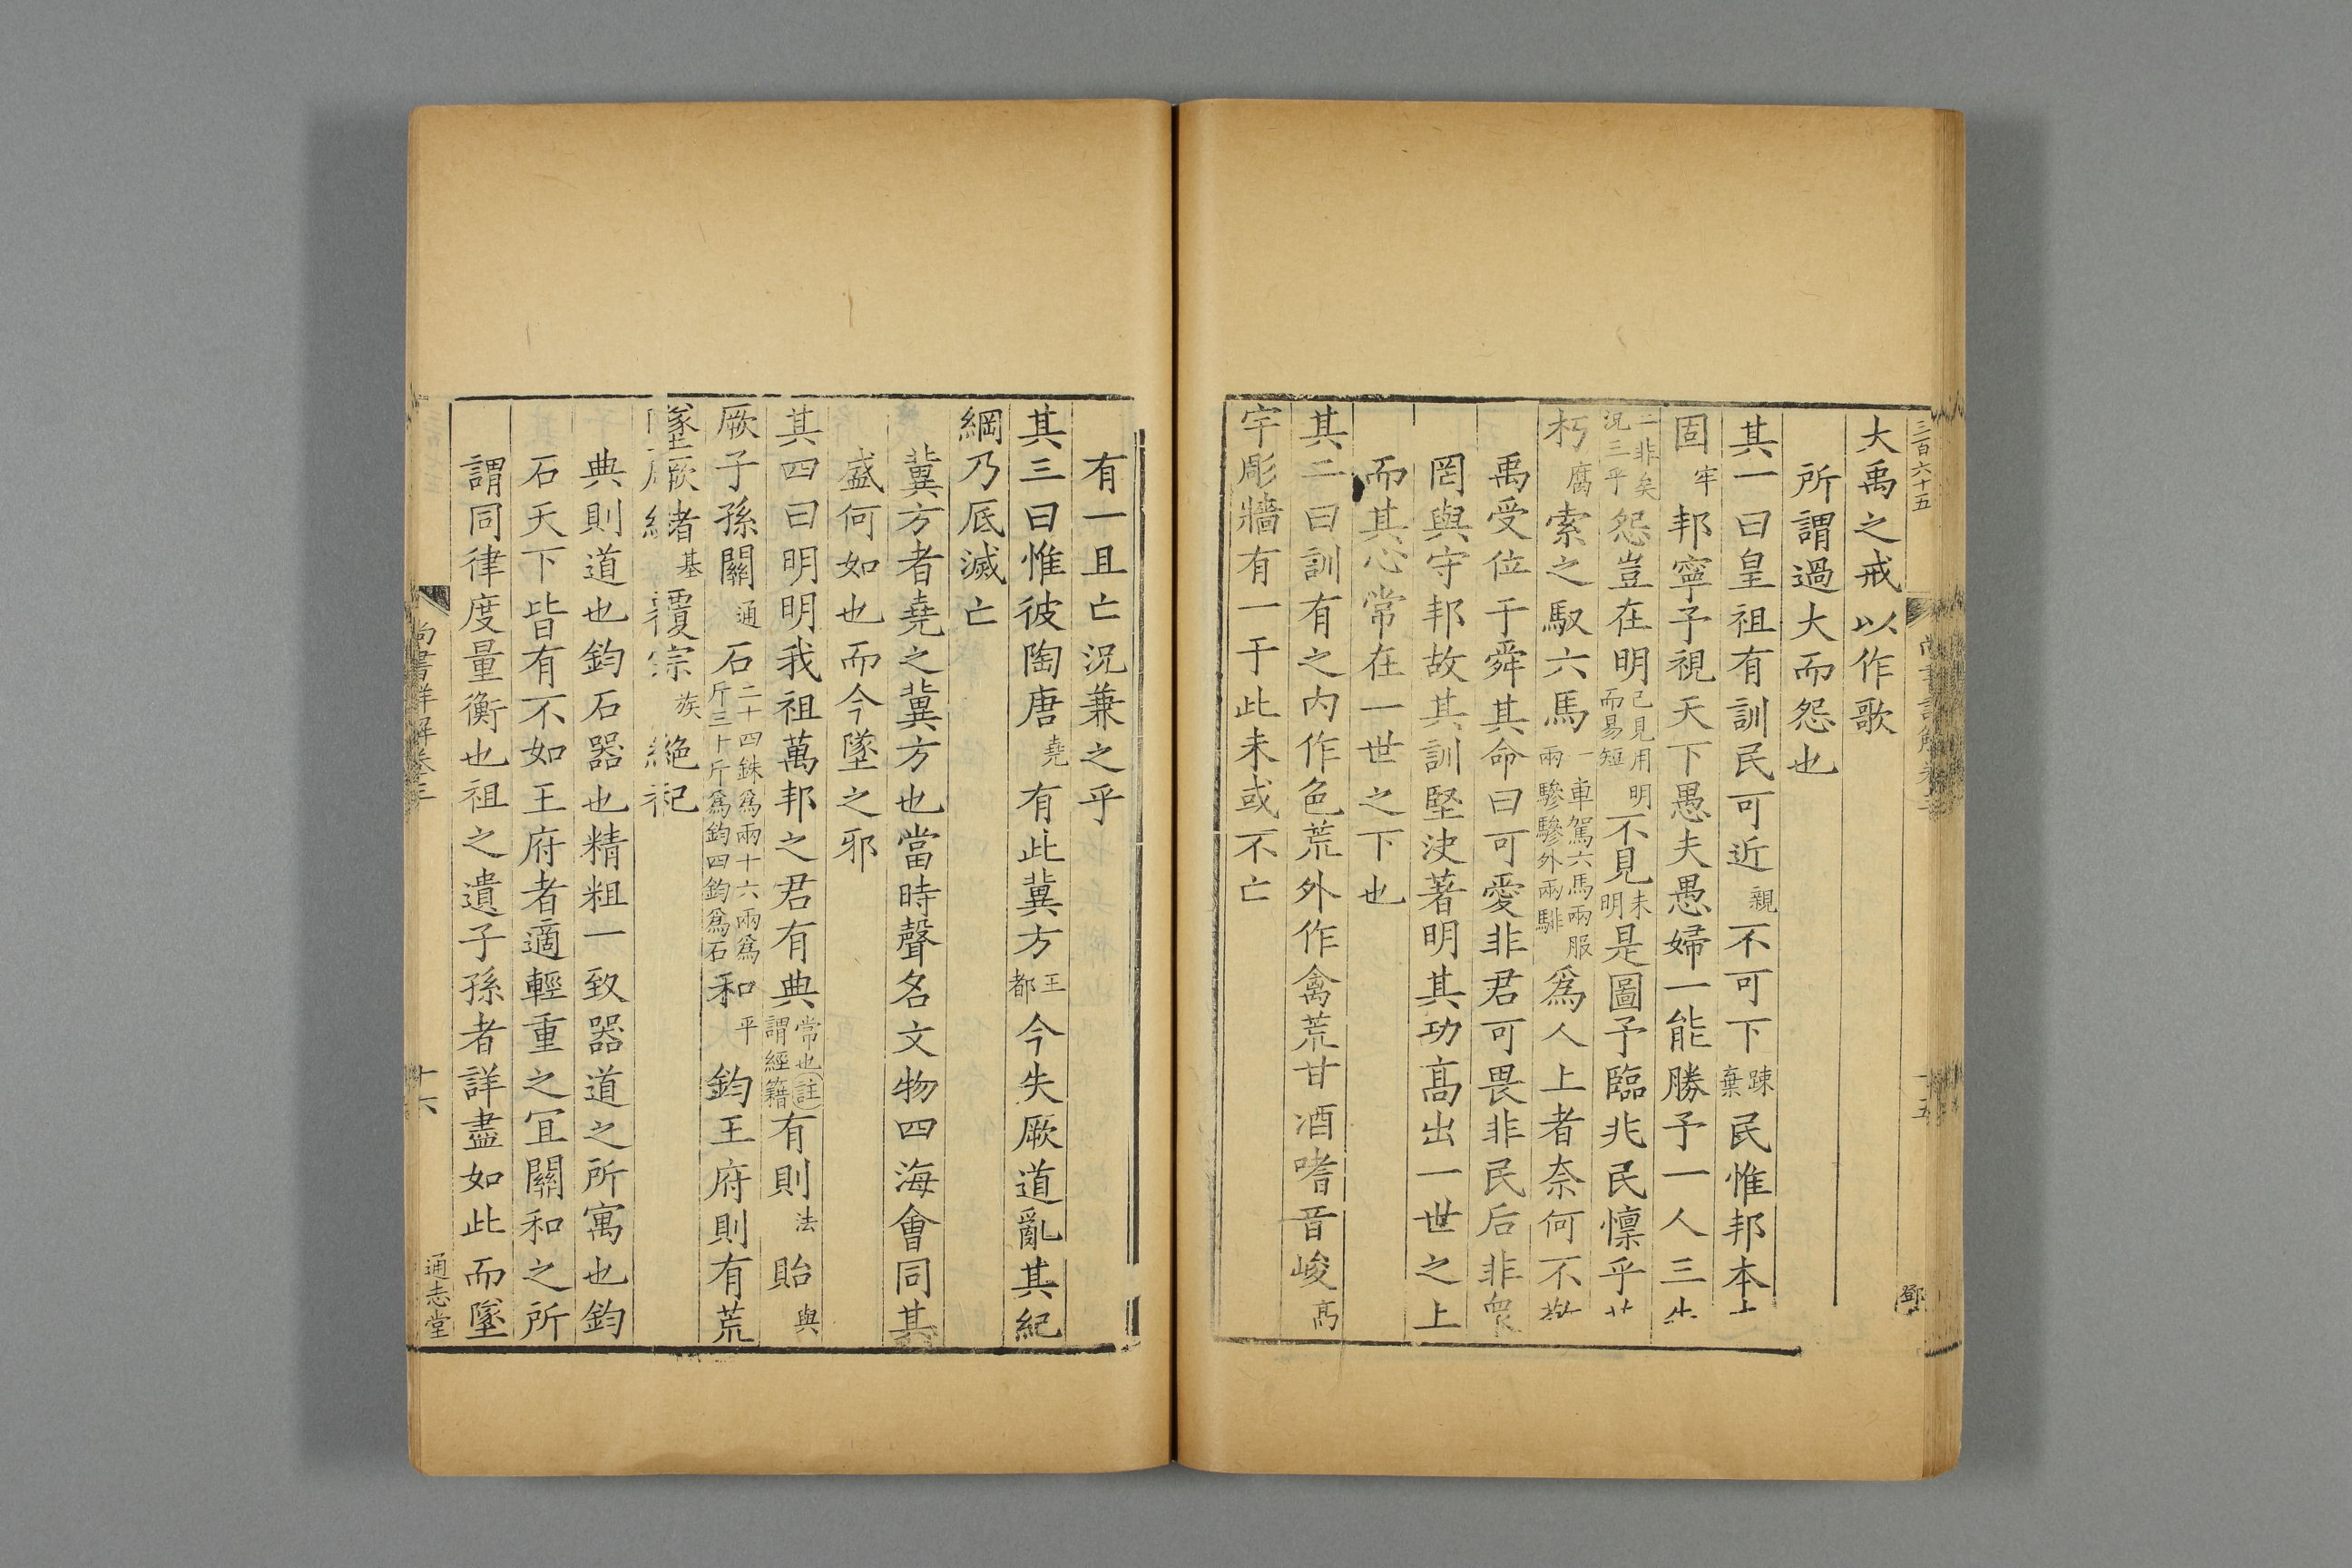 三百六十五
大禹之戒以作歌
所謂過大而怨也
其一曰皇祖有訓民可近親不可下踈棄民惟邦本
固牢邦寧予視天下愚夫愚婦一能勝予一人三失
二非矣況三乎怨豈在明已見用明而易短不見未明是圖予臨兆民懍乎若
朽腐索之馭六馬一車駕六馬兩服兩驂驂外兩騑爲人上者奈何不敬
禹受位于舜其命曰可愛非君可畏非民后非衆
罔與守邦故其訓堅決著明其功高出一世之上
而其心常在一世之下也
其二曰訓有之內作色荒外作禽荒甘酒嗜音峻高
宇彫牆有一于此未或不亡
尚書詳解卷
鄧
有一且亡況兼之乎
其三曰惟彼陶唐堯有此冀方王都今失厥道亂其紀
綱乃厎滅亡
冀方者堯之冀方也當時聲名文物四海會同其
盛何如也而今墜之邪
其四曰明明我祖萬邦之君有典常也註謂經籍有則法貽與
厥子孫關通石二十四銖爲兩十六兩爲斤三十斤爲鈞四鈞爲石和平鈞王府則有荒
墜厥緒基覆宗族絕祀
典則道也鈞石器也精粗一致器道之所寓也鈞
石天下皆有不如王府者適輕重之宜關和之所
謂同律度量衡也祖之遺子孫者詳盡如此而墜
尚書詳解卷三
十六
通志堂